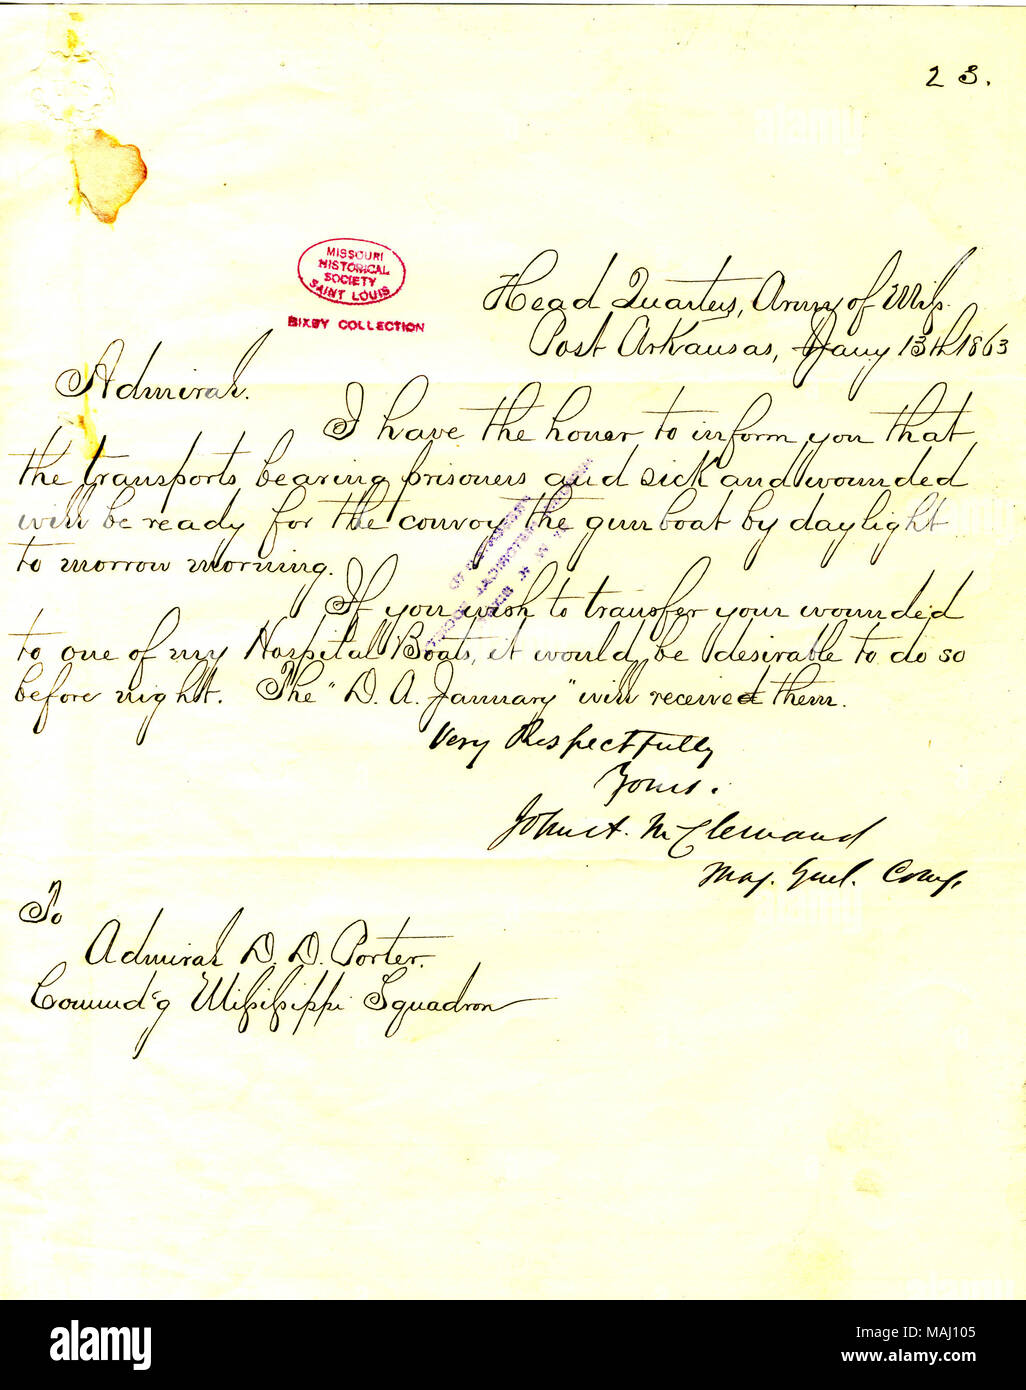 2 3.
MISSOURI
HISTORICAL
SOCIETY
SAINT LOUIS
BIXBY COLLECTION
Head Quarters, Army of Miss.
Post Arkansas, Jany 13th 1863
Admiral.
I have the honor to inform you that
the transports bearing prisoners and sick and wounded
will be ready for the convoy the gunboat by daylight
to morrow morning.
If you wish to transfer your wounded
to one of my Hospital Boats, it would be desirable to do so
before night. The "D. A. January" will receive them.
Very Respectfully
Yours.
John A. McClernand
Maj. Genl. Comg.
To
Admiral D. D. Porter.
Commd'g Mississippi Squadron
alamy
Image ID: MAJ105
www.alamy.com